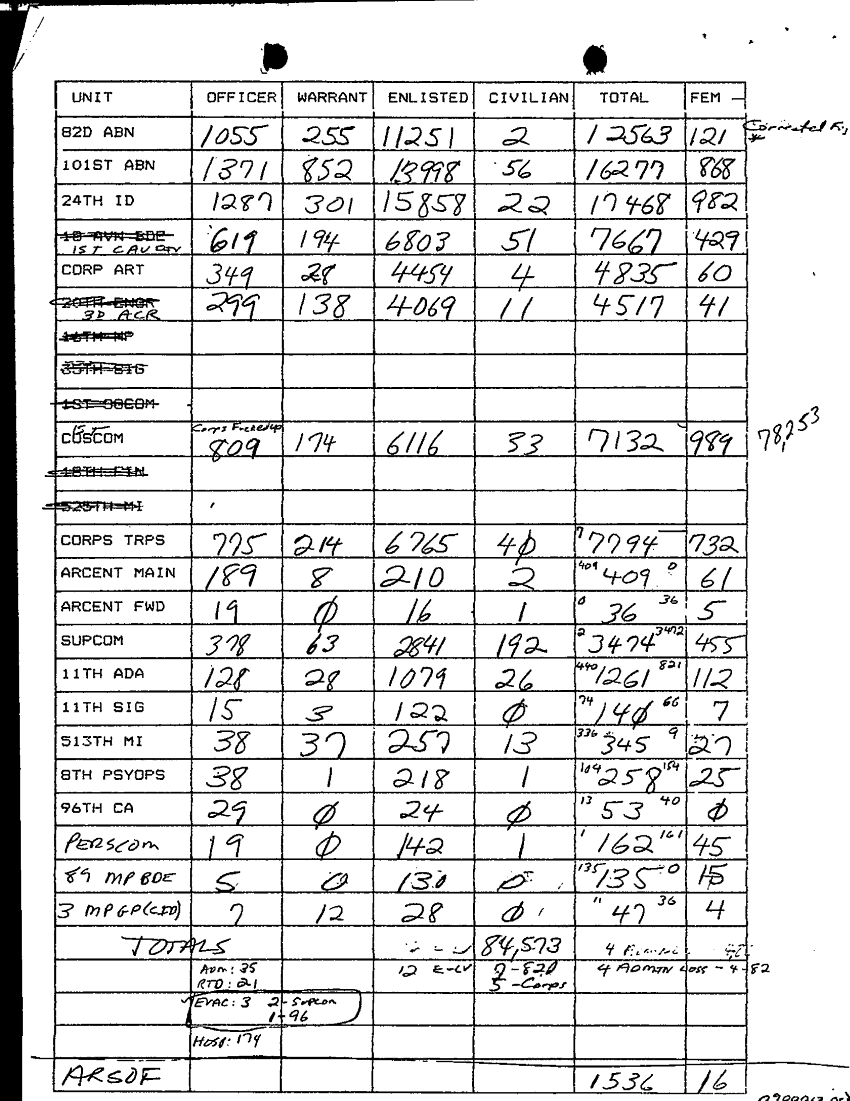 UNIT OFFICER WARRANT ENLISTED CIVILIAN TOTAL FEM
82D ABN 1055 255 11251 2 12563 121 Corrected
101ST ABN 1371 852 13998 56 16277 868
24TH ID 1287 301 15858 22 17468 982
18 AVN BDE
1ST CAV DIV 619 194 6803 51 7667 429
CORP ART 349 28 4454 4 4835 60
20TH ENGR 299 138 4069 11 4517 41
3D ACR
16TH MP
35TH SIG
1ST SOCOM
COSCOM 809 174 6116 33 7132 989 78,253
18TH FIN
525TH MI
CORPS TRPS 775 214 6765 40 7 7794 732
ARCENT MAIN 189 8 210 2 409 409 0 61
ARCENT FWD 19 0 16 1 0 36 36 5
SUPCOM 378 63 2841 192 2 3474 3472 455
11TH ADA 128 28 1079 26 440 1261 821 112
11TH SIG 15 3 122 0 74 140 66 7
513TH MI 38 37 257 13 336 345 9 27
8TH PSYOPS 38 1 218 1 104 258 154 25
96TH CA 29 0 24 0 13 53 40 0
PERSCOM 19 0 142 1 1 162 161 45
89 MP BDE 5 0 130 0 135 135 0 15
3 MP GP (CID) 7 12 28 0 11 47 36 4
TOTALS 84,573
ADM: 35 12 E-LV 2-820 4 ADMIN LOSS - 4-82
RTD: 21 5-Corps
EVAC: 3 2-Supcom
1-96
HOSP: 174
ARSOF 1536 16